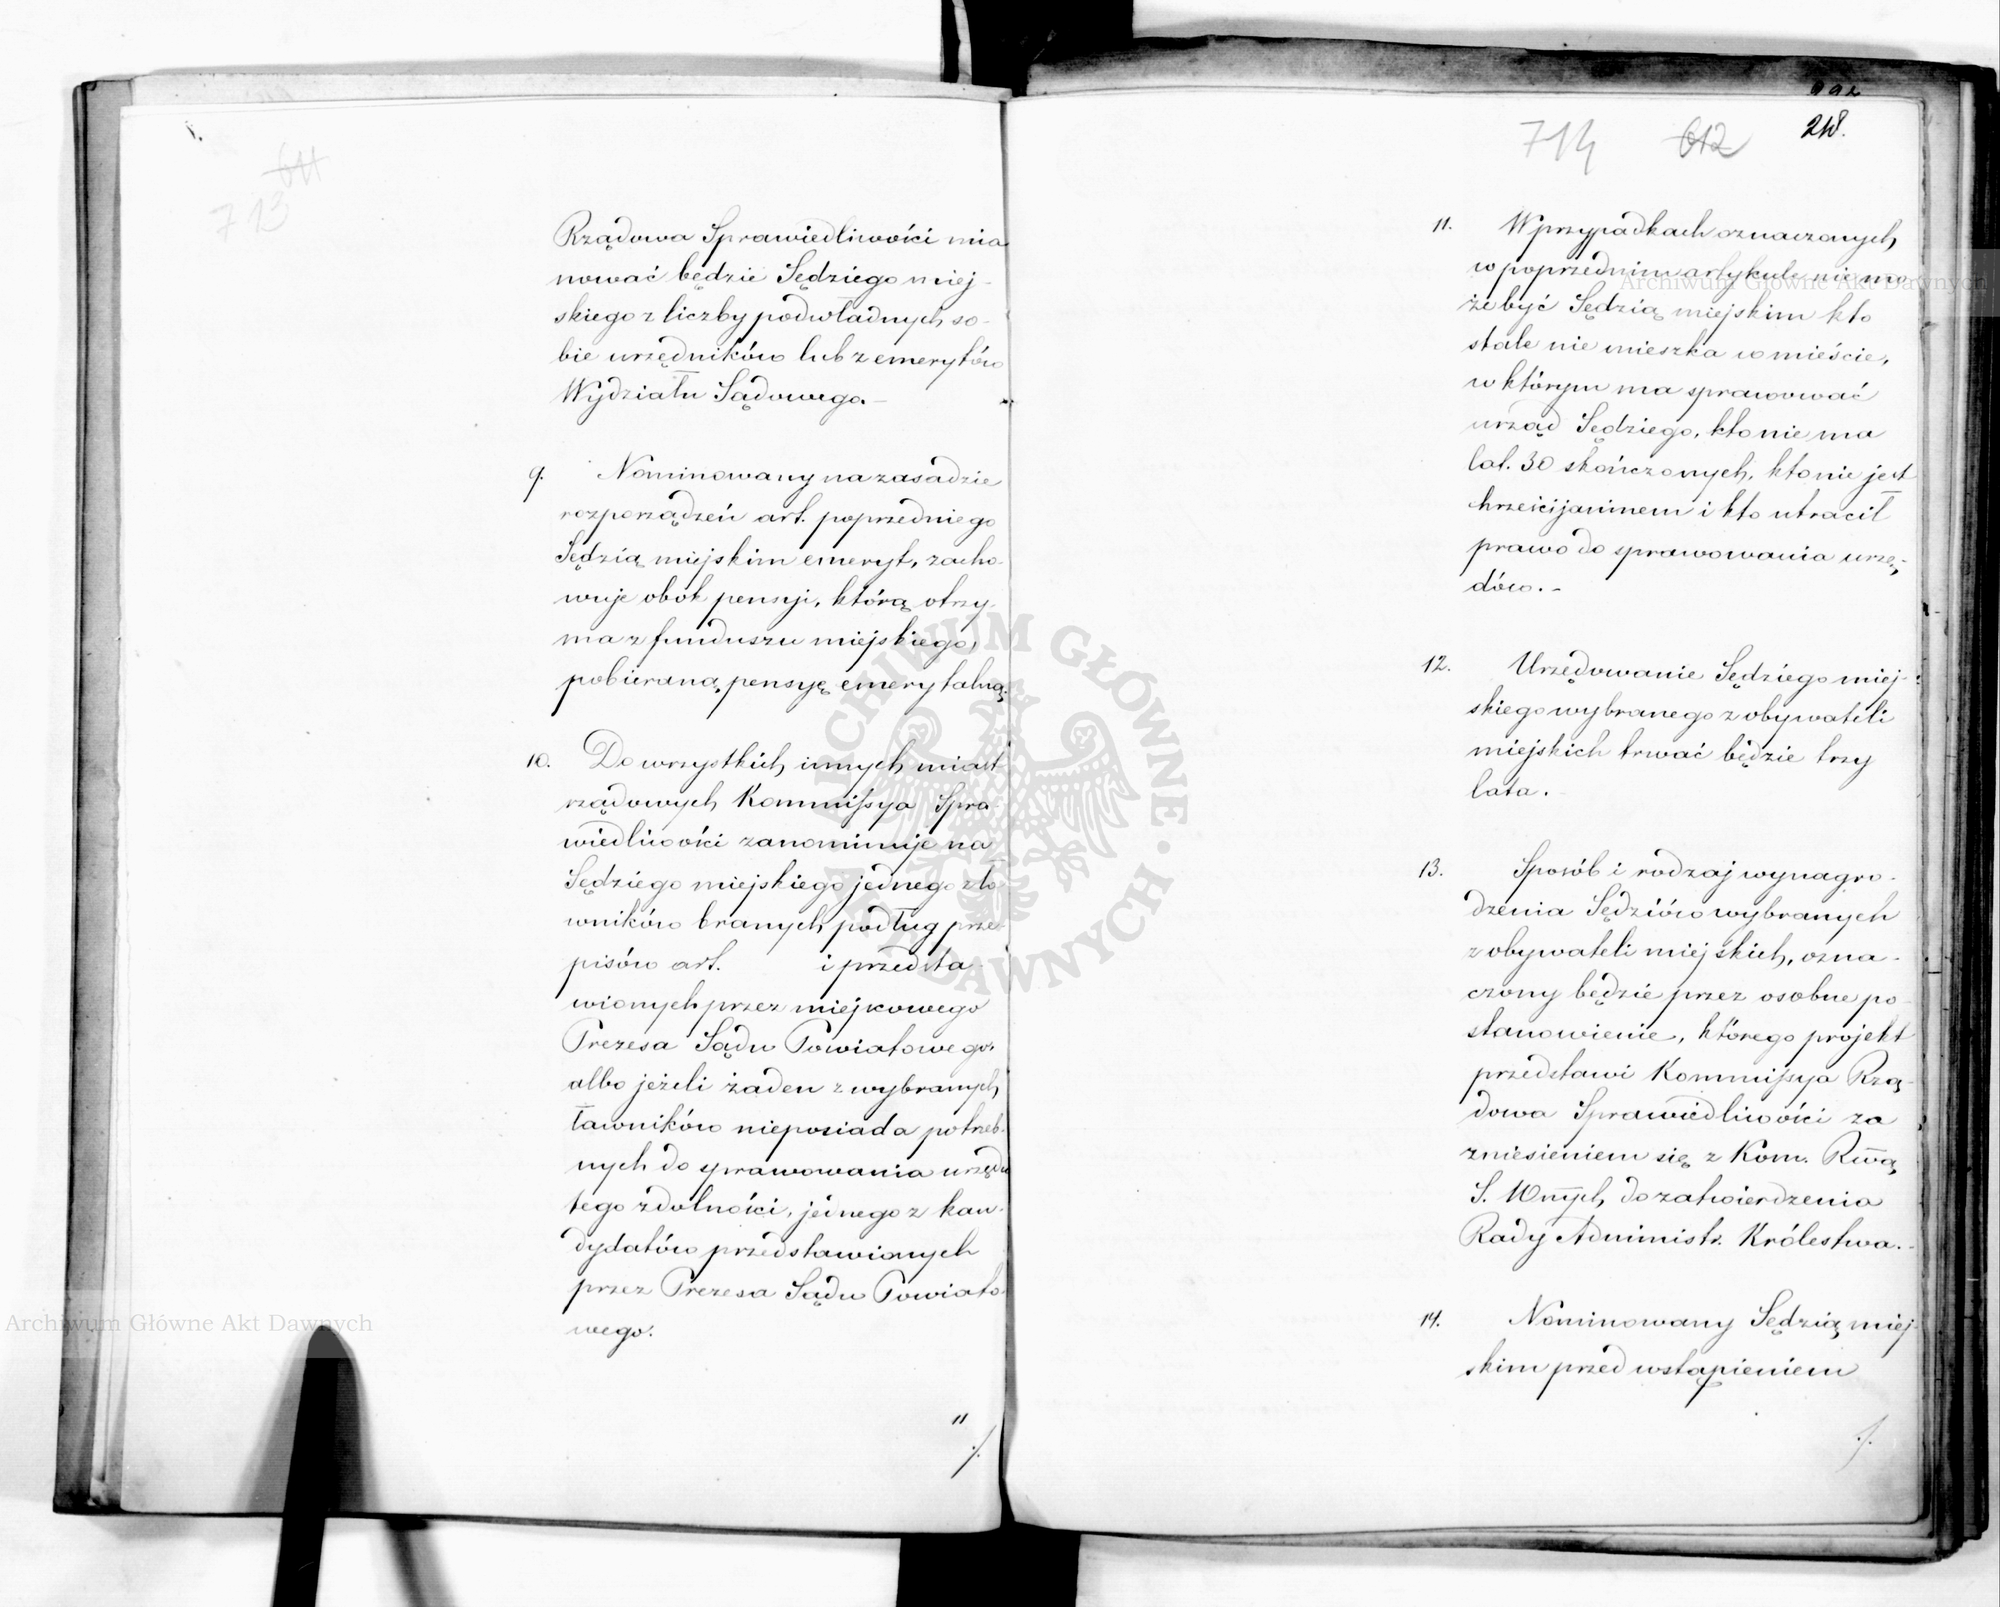 8.
611
713
Rządowa Sprawiedliwości mia
nować będzie Sędziego miej-
skiego z liczby podwładnych so-
bie urzędników lub z emerytów
Wydziału Sądowego.–
9. Nominowany na zasadzie
rozporządzeń art. poprzedniego
Sędzią miejskim emeryt, zacho-
wuje obok pensyi, którą otrzy-
ma z funduszu miejskiego,
pobieraną pensyę emerytalną.
10. Do wszystkich innych miast
rządowych Kommissya Spra-
wiedliwości zanominuje na
Sędziego miejskiego jednego z ła-
wników branych podług prze-
pisów art. i przedsta-
wionych przez miejscowego
Prezesa Sądu Powiatowego,
albo jeżeli żaden z wybranych
ławników nieposiada potrzeb-
nych do sprawowania urzędu
tego zdolności, jednego z kan-
dydatów przedstawionych
przez Prezesa Sądu Powiato-
wego.
11
./.
714 612 218.
11. W przypadkach oznaczonych
w poprzednim artykule nie mo-
że być Sędzią miejskim kto
stale nie mieszka w mieście,
w którym ma sprawować
urząd Sędziego, kto nie ma
lat. 30 skończonych, kto nie jest
chrześcijaninem i kto utracił
prawo do sprawowania urzę-
dów.–
12. Urzędowanie Sędziego miej-
skiego wybranego z obywateli
miejskich trwać będzie trzy
lata.
13. Sposób i rodzaj wynagro-
dzenia Sędziów wybranych
z obywateli miejskich, ozna-
czony będzie przez osobne po-
stanowienie, którego projekt
przedstawi Kommissya Rzą-
dowa Sprawiedliwości za
zniesieniem się z Kom. Rwą
S. Wnych, do zatwierdzenia
Rady Administr. Królestwa.–
14. Nominowany Sędzią miej-
skim przed wstąpieniem
./.
Archiwum Główne Akt Dawnych
Archiwum Główne Akt Dawnych
ARCHIWUM GŁÓWNE AKT DAWNYCH